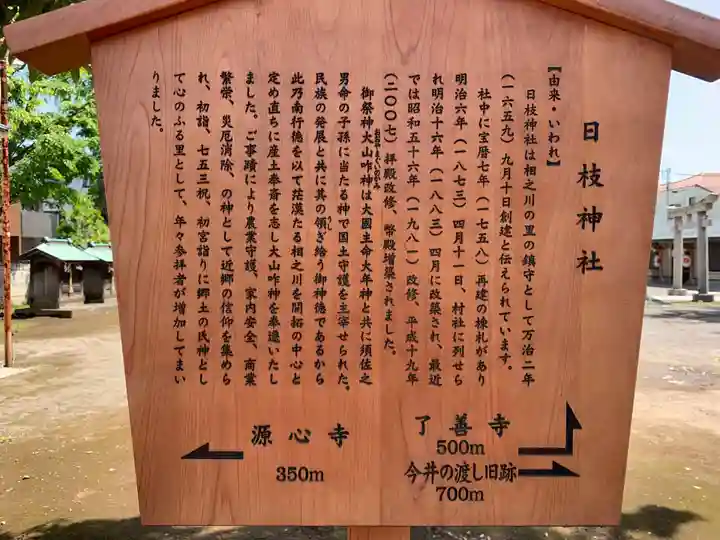 日枝神社
【由来・いわれ】
日枝神社は相之川の里の鎮守として万治二年
(一六五九)九月十日創建と伝えられています。
社中に宝暦七年(一七五八)再建の棟札があり
明治六年(一八七三)四月十一日、村社に列せら
れ明治十六年(一八八三)四月に改築され、最近
では昭和五十六年(一九八一)改修、平成十九年
(二〇〇七)拝殿改修、幣殿増築されました。
御祭神大山咋神は大國主命大年神と共に須佐之
男命の子孫に当たる神で国土守護を主宰せられた。
民族の発展と共に其の領ぎ給う御神徳であるから
此乃南行徳を以て茫漠たる相之川を開拓の中心と
定め直ちに産土奉斎を志し大山咋神を奉遷いたし
ました。ご事蹟により農業守護、家内安全、商業
繁栄、災厄消除、の神として近郷の信仰を集めら
れ、初詣、七五三祝、初宮詣りに郷土の氏神とし
て心のふる里として、年々参拝者が増加してまい
りました。
源心寺
350m
了善寺
500m
今井の渡し旧跡
700m